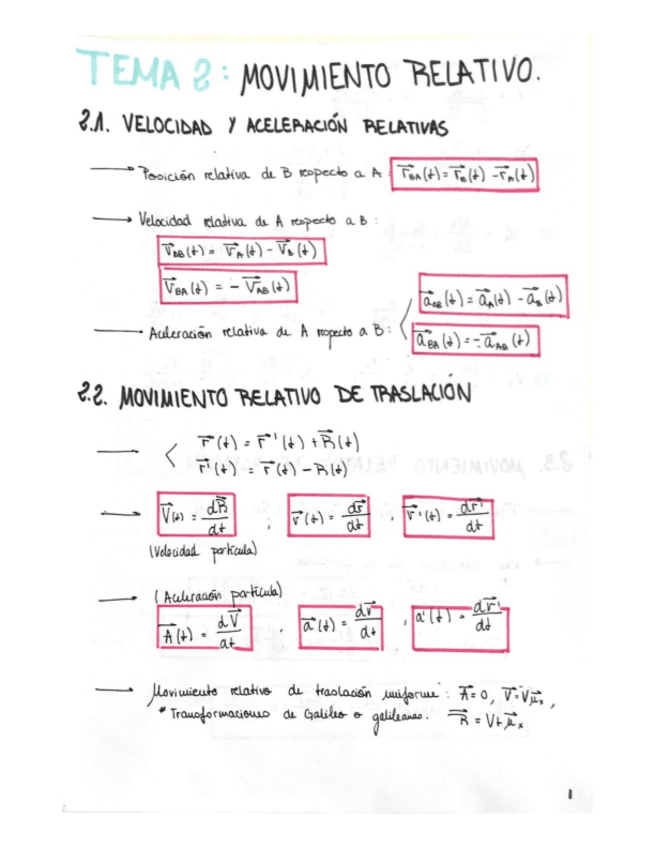 TEMA 2: MOVIMIENTO RELATIVO.
2.1. VELOCIDAD Y ACELERACIÓN RELATIVAS
→ Posición relativa de B respecto a A: r⃗_BA(t) = r⃗_B(t) - r⃗_A(t)
→ Velocidad relativa de A respecto a B:
v⃗_AB(t) = v⃗_A(t) - v⃗_B(t)
v⃗_BA(t) = - v⃗_AB(t)
a⃗_AB(t) = a⃗_A(t) - a⃗_B(t)
→ Aceleración relativa de A respecto a B:
a⃗_BA(t) = - a⃗_AB(t)
2.2. MOVIMIENTO RELATIVO DE TRASLACIÓN
→ r⃗(t) = r⃗'(t) + R⃗(t)
r⃗'(t) = r⃗(t) - R(t)
→ V⃗(t) = dR⃗/dt ; v⃗(t) = dr⃗/dt , v⃗'(t) = dr⃗'/dt
(Velocidad partícula)
→ (Aceleración partícula)
A⃗(t) = dV⃗/dt , a⃗(t) = dv⃗/dt , a'(t) = dv⃗'/dt
→ Movimiento relativo de traslación uniforme: A⃗ = 0, V⃗ = Vμ⃗_x,
* Transformaciones de Galileo o galileanas. R⃗ = Vtμ⃗_x
1